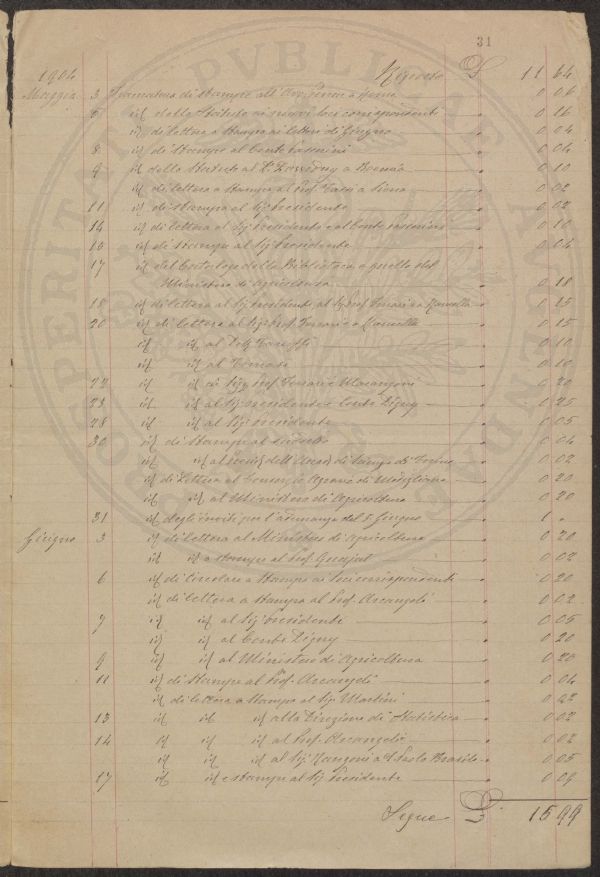 31
PROSPERITATI PVBLICAE AVGENDAE
1904 Riporto L 11 64
Maggio 3 Francatura di Stampe all' 0 06
6 id dello Statuto ai nuovi Soci corrispondenti 0 16
id di lettere a Stampa ai lettori di Giugno 0 04
8 id di Stampe al Conte 0 04
9 id dello Statuto al 0 10
id di lettera a Stampa al Prof. a Siena 0 02
11 id di Stampa al Sig. Presidente 0 02
14 id di lettera al Sig. Presidente e al Conte 0 10
15 id di Stampe al Sig. Presidente 0 04
17 id del Catalogo della Biblioteca a quella del
Ministero di Agricoltura 0 18
18 id di lettera al Sig. Presidente al Sig. Prof. Ferrari e 0 15
20 id di lettere al Sig. Prof. Ferrari e 0 15
id id al 0 10
id id al Tomasi 0 10
22 id id ai Sigg. Prof. Ferrari e Marangoni 0 20
23 id id al Sig. Presidente e Conte Digny 0 25
28 id id al Sig. Presidente 0 05
30 id di Stampe al 0 04
id id al dell' Accad. di di Torino 0 02
id di Lettera al Consorzio Agrario di Modigliana 0 20
id id al Ministero di Agricoltura 0 20
31 id degli inviti per l'adunanza del 5 Giugno 1 "
Giugno 3 id di lettera al Ministero di Agricoltura 0 20
id id a Stampa al Prof. 0 02
6 id di Circolare a Stampa ai Soci corrispondenti 0 20
id di lettera a Stampa al Prof. Arcangeli 0 02
7 id id al Sig. Presidente 0 05
id id al Conte Digny 0 20
9 id id al Ministero di Agricoltura 0 20
11 id di Stampe al Prof. Arcangeli 0 04
id di lettera a Stampa al Sig. Martini 0 02
13 id id id alla Direzione di Statistica 0 02
14 id id id al Prof. Arcangeli 0 02
id id id al Sig. a S. Paolo Brasile 0 05
17 id id e Stampe al Sig. Presidente 0 09
Segue L 15 99